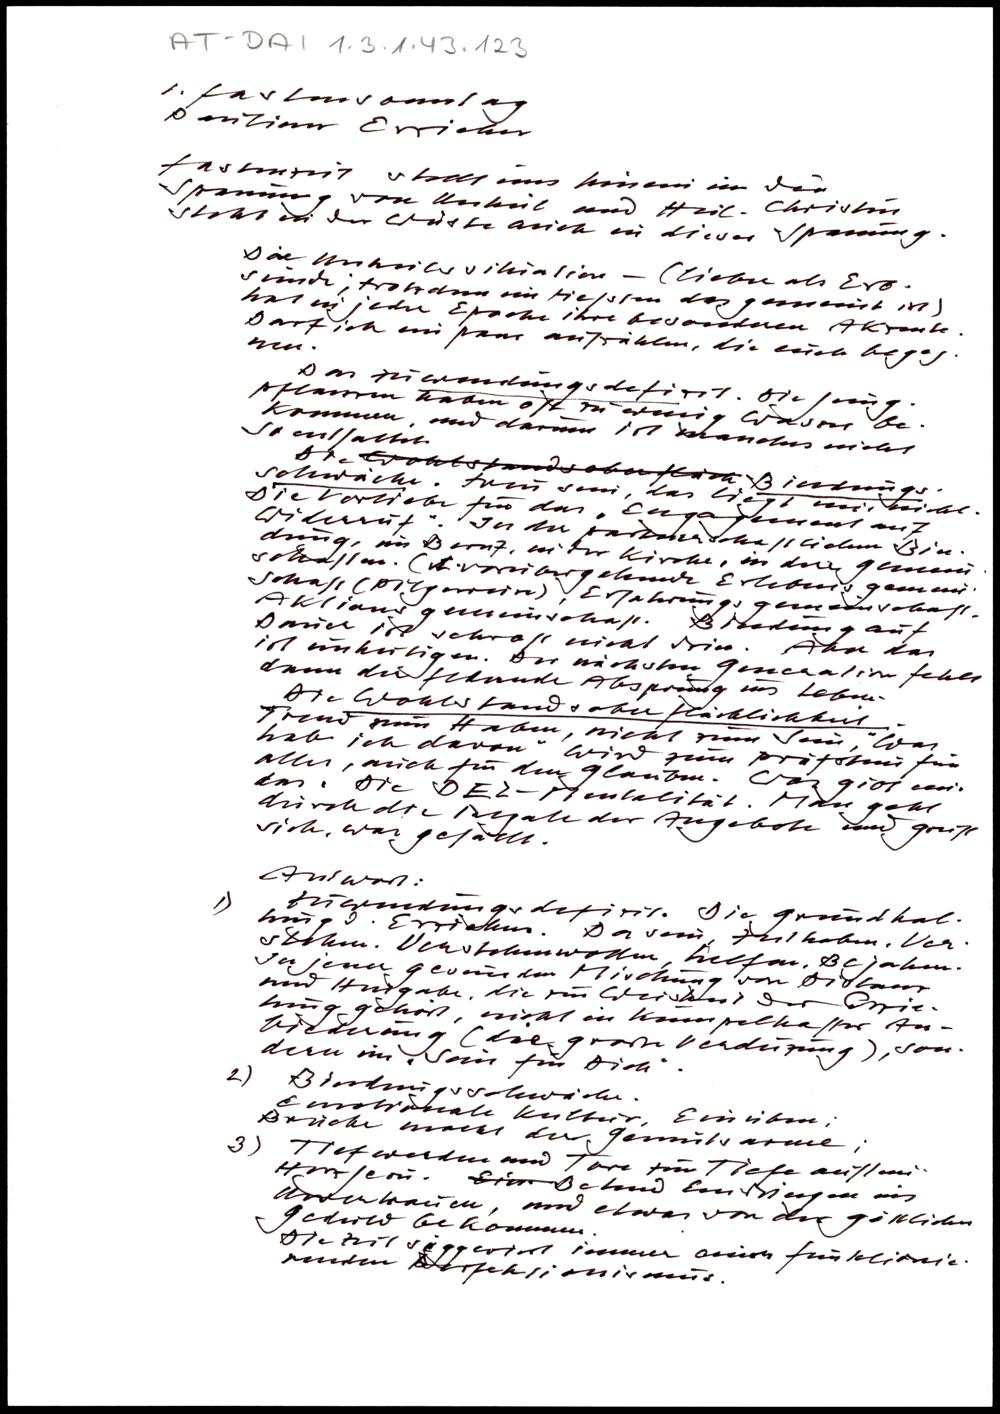 AT-DAI 1.3.1.43.123
1. Fastensonntag
Seminar Erzieher
Fastenzeit stellt uns hinein in die
Spannung von Unheil und Heil. Christus
steht in der Wüste auch in dieser Spannung.
Die Unheilssituation – (lieber als Erb-
sünde, trotzdem im tiefsten das gemeint ist)
hat in jeder Epoche ihre besonderen Akzente.
Darf ich ein paar aufzählen, die euch begeg-
nen.
Das Zuwendungsdefizit. Die Jung-
pflanzen haben oft zu wenig Wasser be-
kommen, und darum ist manches nicht
so entfaltet.
Die Wohlstandsoberfläch Bindungs-
schwäche. Treu sein, das liegt mir nicht.
Die Vorliebe für das "Engagement auf
Widerruf". In der partnerschaftlichen Bin-
dung, im Beruf, in der Kirche, in den Gemein-
schaften. (vorübergehende Erlebnisgemein-
schaft (Pilgerreise), Erfahrungsgemeinschaft.
Aktionsgemeinschaft. Bindung auf
Dauer ist schroff nicht drin. Aber das
ist unheiligen. Der nächsten Generation fehlt
dann der federnde Absprung ins Leben.
Die Wohlstandsoberflächlichkeit.
Trend zum Haben, nicht zum Sein, "Was
hab ich davon" wird zum Prüfstein für
alles, auch für den Glauben. Was gibt mir
das. Die DEZ-Mentalität. Man geht
durch die Regale der Angebote und greift
sich, was gefällt.
Antwort:
1) Zuwendungsdefizit. Die Grundhal-
tung d. Erziehers. Da sein, Zeit haben, Ver-
stehen. Verstehenwollen, helfen, Bejahen.
In jener gesunden Mischung von Distanz
und Hingabe, die zur Weisheit der Erzie-
hung gehört, nicht in kumpelhafter An-
biederung (die große Verdünnung), son-
dern im "Sein für Dich".
2) Bindungsschwäche.
Emotionale Kultur, Einüben;
Brüche macht der Gemütsarme;
3) Tief werden und Tore zur Tiefe aufstoßen.
Horchen. Betend Eindringen ins
Urvertrauen, und etwas von der göttlichen
Geduld bekommen.
Die Zeit suggeriert immer einen funktionie-
renden Perfektionismus.